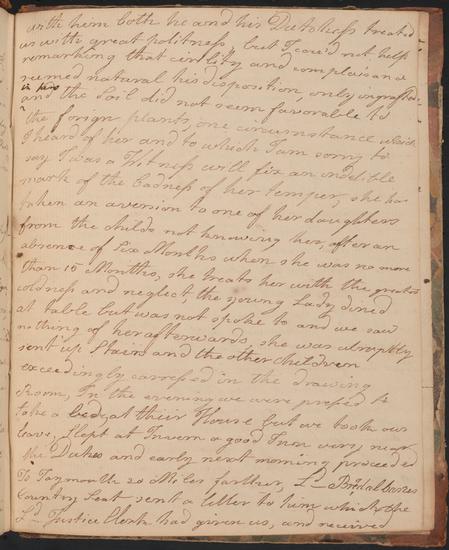 with him both he and his Dutchess treated
us with great politness, but I cou'd not help
remarking that civility and complaisance
seemed natural his disposition, only ingrafted
in hers
and the Soil did not seem favorable to
the forign plants, one circumstance which
I heard of her and to which I am sorry to
say I was a Witness will fix an indelible
mark of the badness of her temper, she has
taken an aversion to one of her daughters
from the childs not knowing her, after an
absence of Six Months when she was no more
than 15 Months, she treats her with the greatest
coldness and neglect, the young Lady dined
at table but was not spoke to and we saw
nothing of her afterwards, she was abruptly
sent up Stairs and the other children
exceedingly caressed in the drawing
Room, In the evening we were pressed to
take a bed, at their House but we took our
leave, Slept at Invern a good Inn very near
the Dukes and early next morning proceeded
To Taymouth 20 Miles farther, Ld Bredalbanes
Country Seat sent a letter to him which the
Ld Justice Clerk had given us, and received